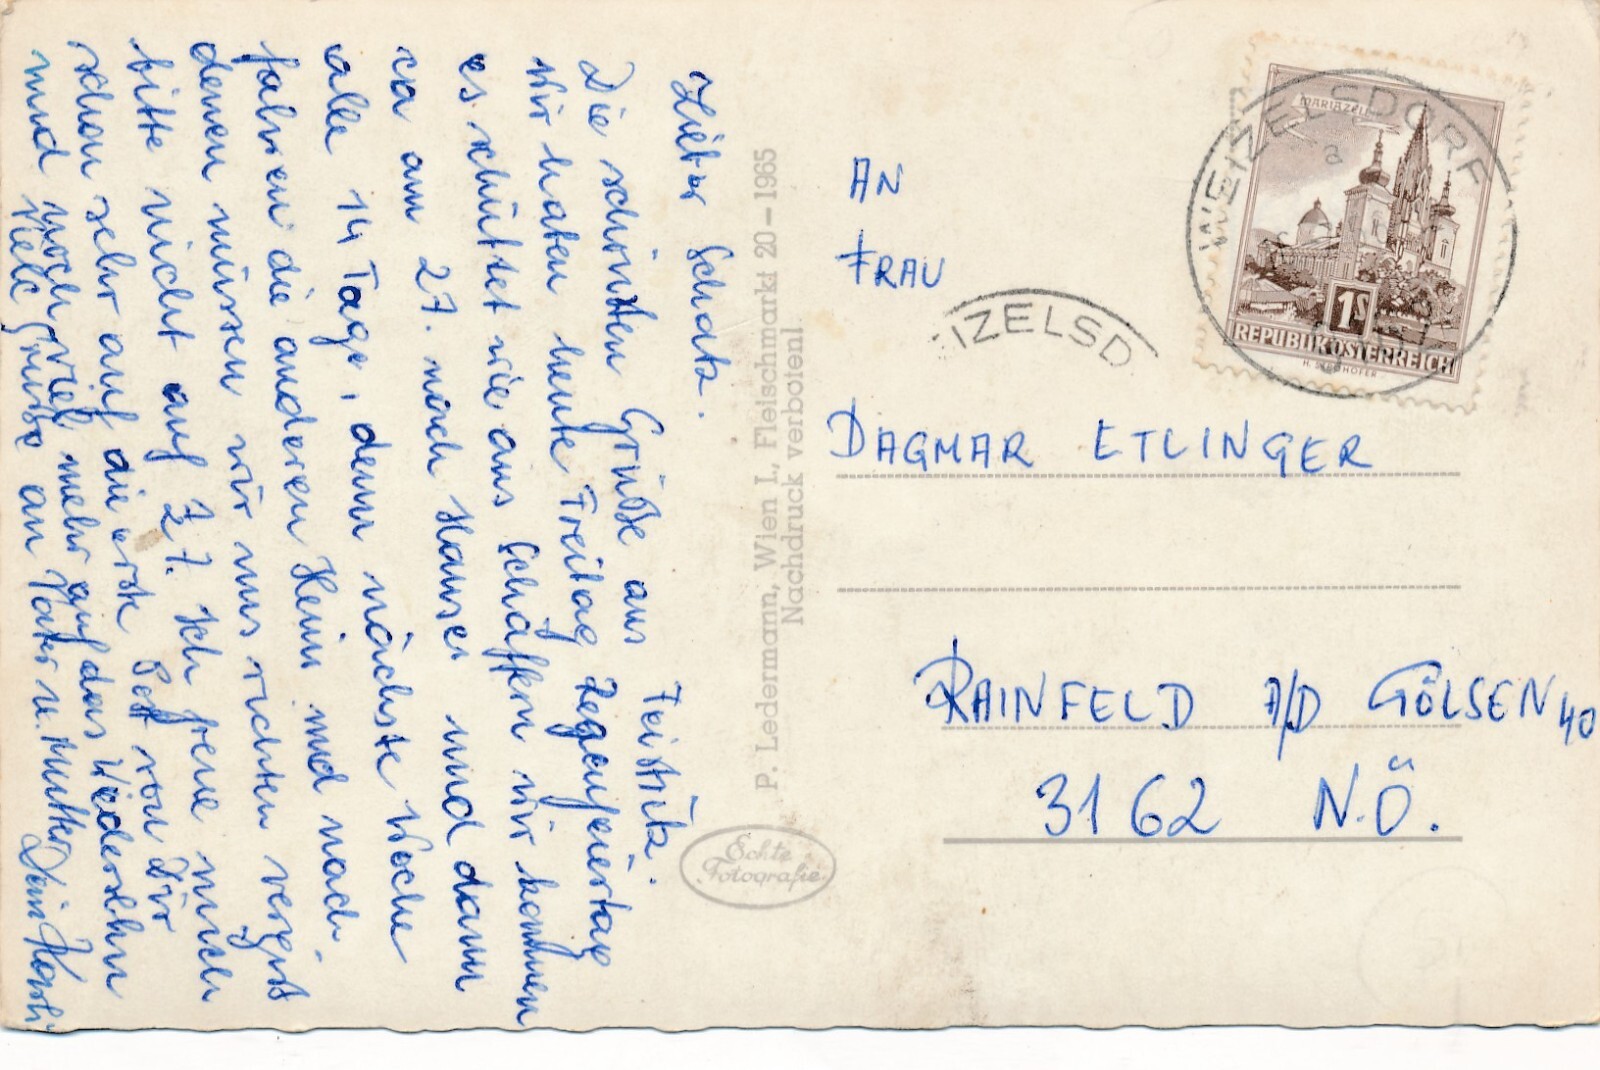 Lieber Schatz.
Die schönsten Grüße aus Feistritz.
Wir haben heute Freitag Regenfeiertag
es schüttet wie aus Schäffern wir kommen
ca am 27. nach Hause und dann
alle 14 Tage, denn nächste Woche
fahren die anderen Heim und nach
denen müssen wir uns richten vergiß
bitte nicht auf 27. Ich freue mich
schon sehr auf die erste Post von Dir
und noch viel mehr auf das Wiedersehn
Viele Grüße an Vater u. Mutter Dein
P. Ledermann, Wien I., Fleischmarkt 20-1965
Nachdruck verboten!
Echte
Fotografie
MARIAZELL
1S
REPUBLIK ÖSTERREICH
WEIZELSDORF
a
IZELSD
AN
FRAU
DAGMAR ETLINGER
RAINFELD A/D GÖLSEN 40
3162 N.Ö.